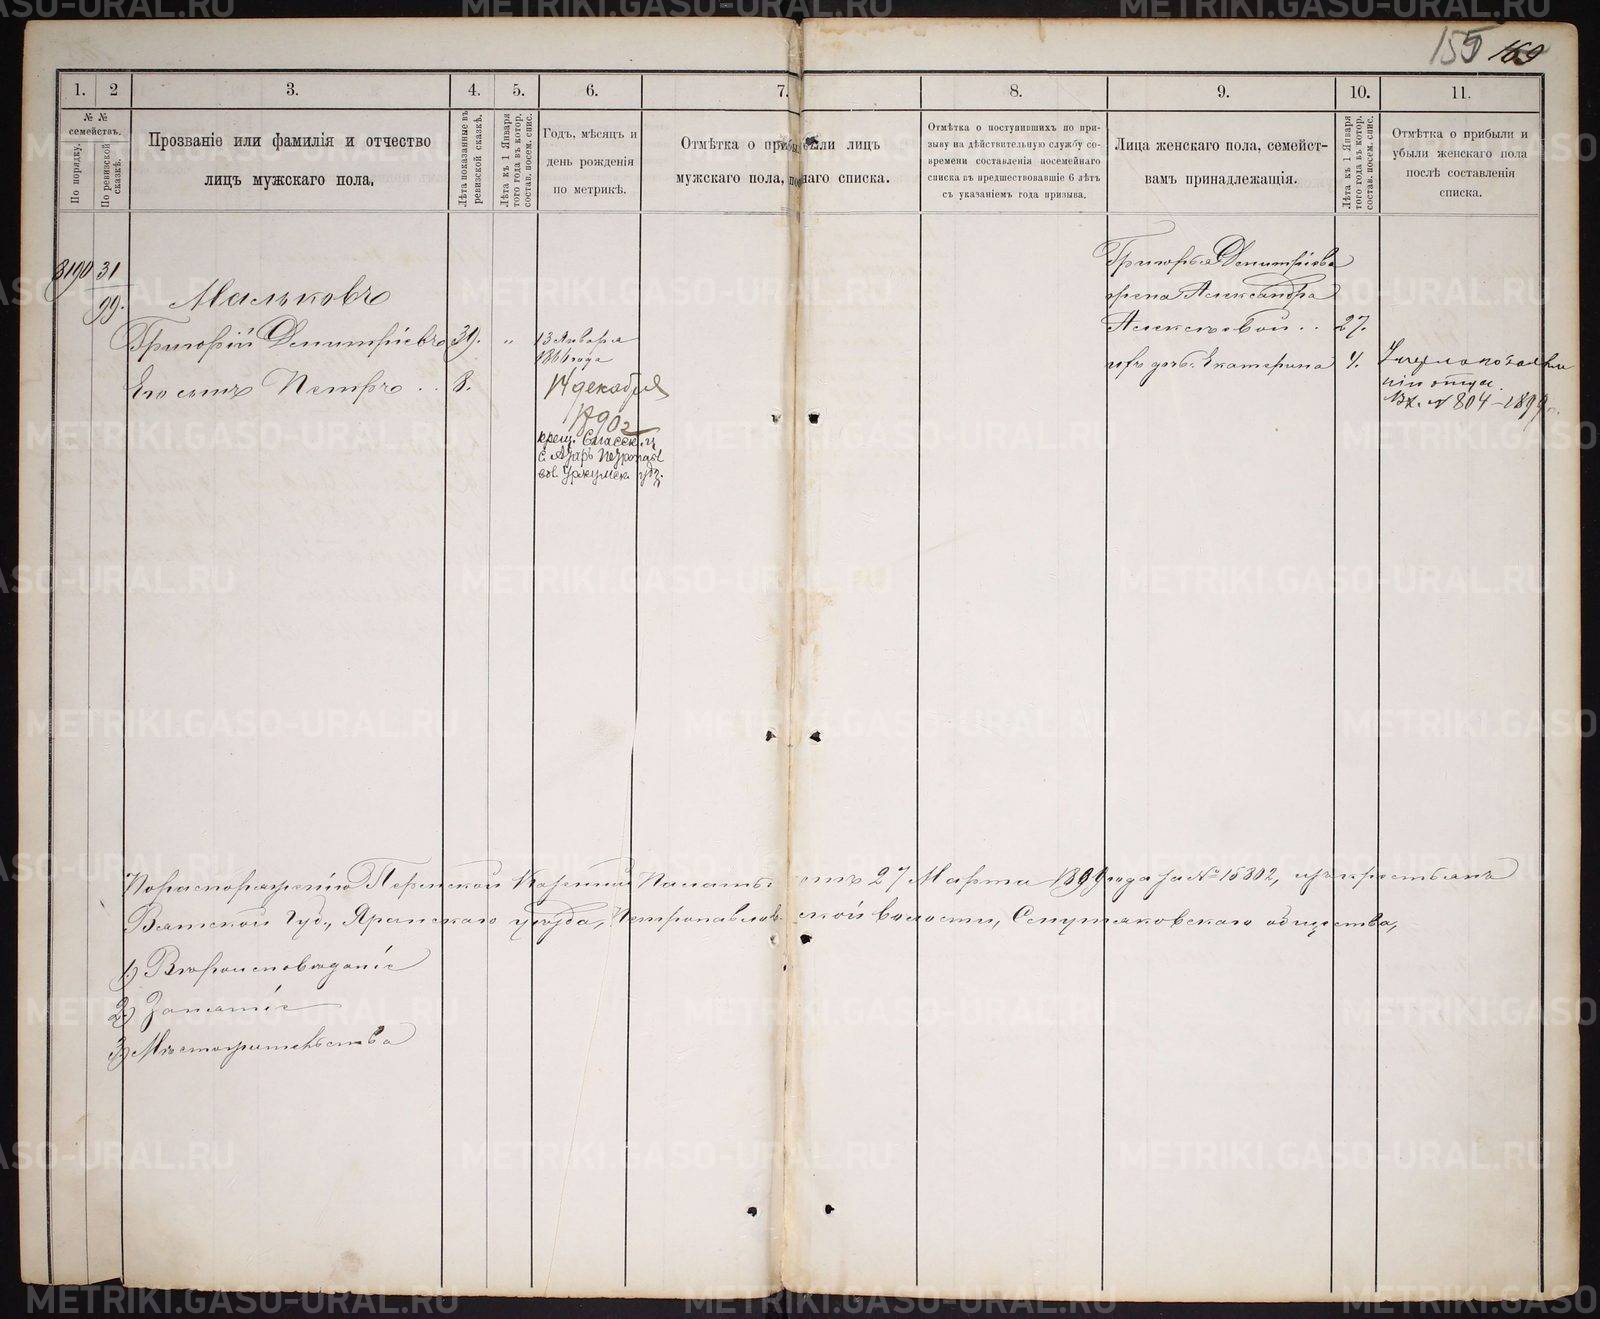 155 169
1. 2 3. 4. 5. 6. 7. 8. 9. 10. 11.
№ №
семействъ.
По порядку.
По ревизской сказкѣ.
Прозваніе или фамилія и отчество
лицъ мужскаго пола.
Лѣта показанные въ
ревизской сказкѣ.
Лѣта къ 1 Января
того года въ котор.
состав. посем. спис.
Годъ, мѣсяцъ и
день рожденія
по метрикѣ.
Отмѣтка о прибыли лицъ
мужскаго пола, наго списка.
Отмѣтка о поступившихъ по при-
зыву на дѣйствительную службу со-
времени составленія посемейнаго
списка въ предшествовавшіе 6 лѣтъ
съ указаніемъ года призыва.
Лица женскаго пола, семейст-
вамъ принадлежащія.
Лѣта къ 1 Января
того года въ котор.
состав. посем. спис.
Отмѣтка о прибыли и
убыли женскаго пола
послѣ составленія
списка.
3190 31
99.
Мальковъ
Григорій Демитріевъ 31. „ 13 Января
1866 года
Его сынъ Петръ . . 8. 14 декабря
1890 г
крещ. Спасск. ц.
с.
Уржумск. у.
Григорья Демитріева
жена Александра
Алексѣевой . . 27.
ихъ дочь Екатерина 4.
отца.
Вх. № 804 - 1899 г.
По распоряженію Пермской Казенной Палаты отъ 27 Марта 1899 года за № 15302, изъ крестьянъ
Вятской Губ., Яранскаго уѣзда, Петропавловской волости, общества,
1) Вѣроисповѣданіе
2) Занятіе
3) Мѣстожительства
METRIKI.GASO-URAL.RU